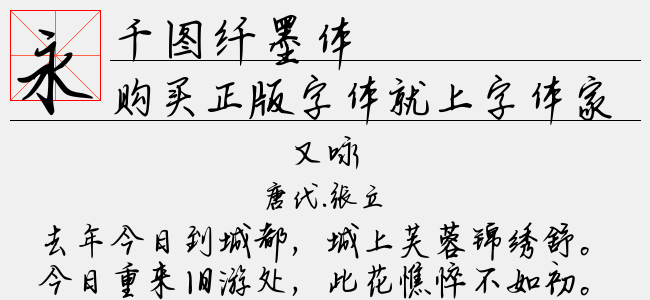 永
千图纤墨体
购买正版字体就上字体家
又咏
唐代.张立
去年今日到城都，城上芙蓉锦绣舒。
今日重来旧游处，此花憔悴不如初。